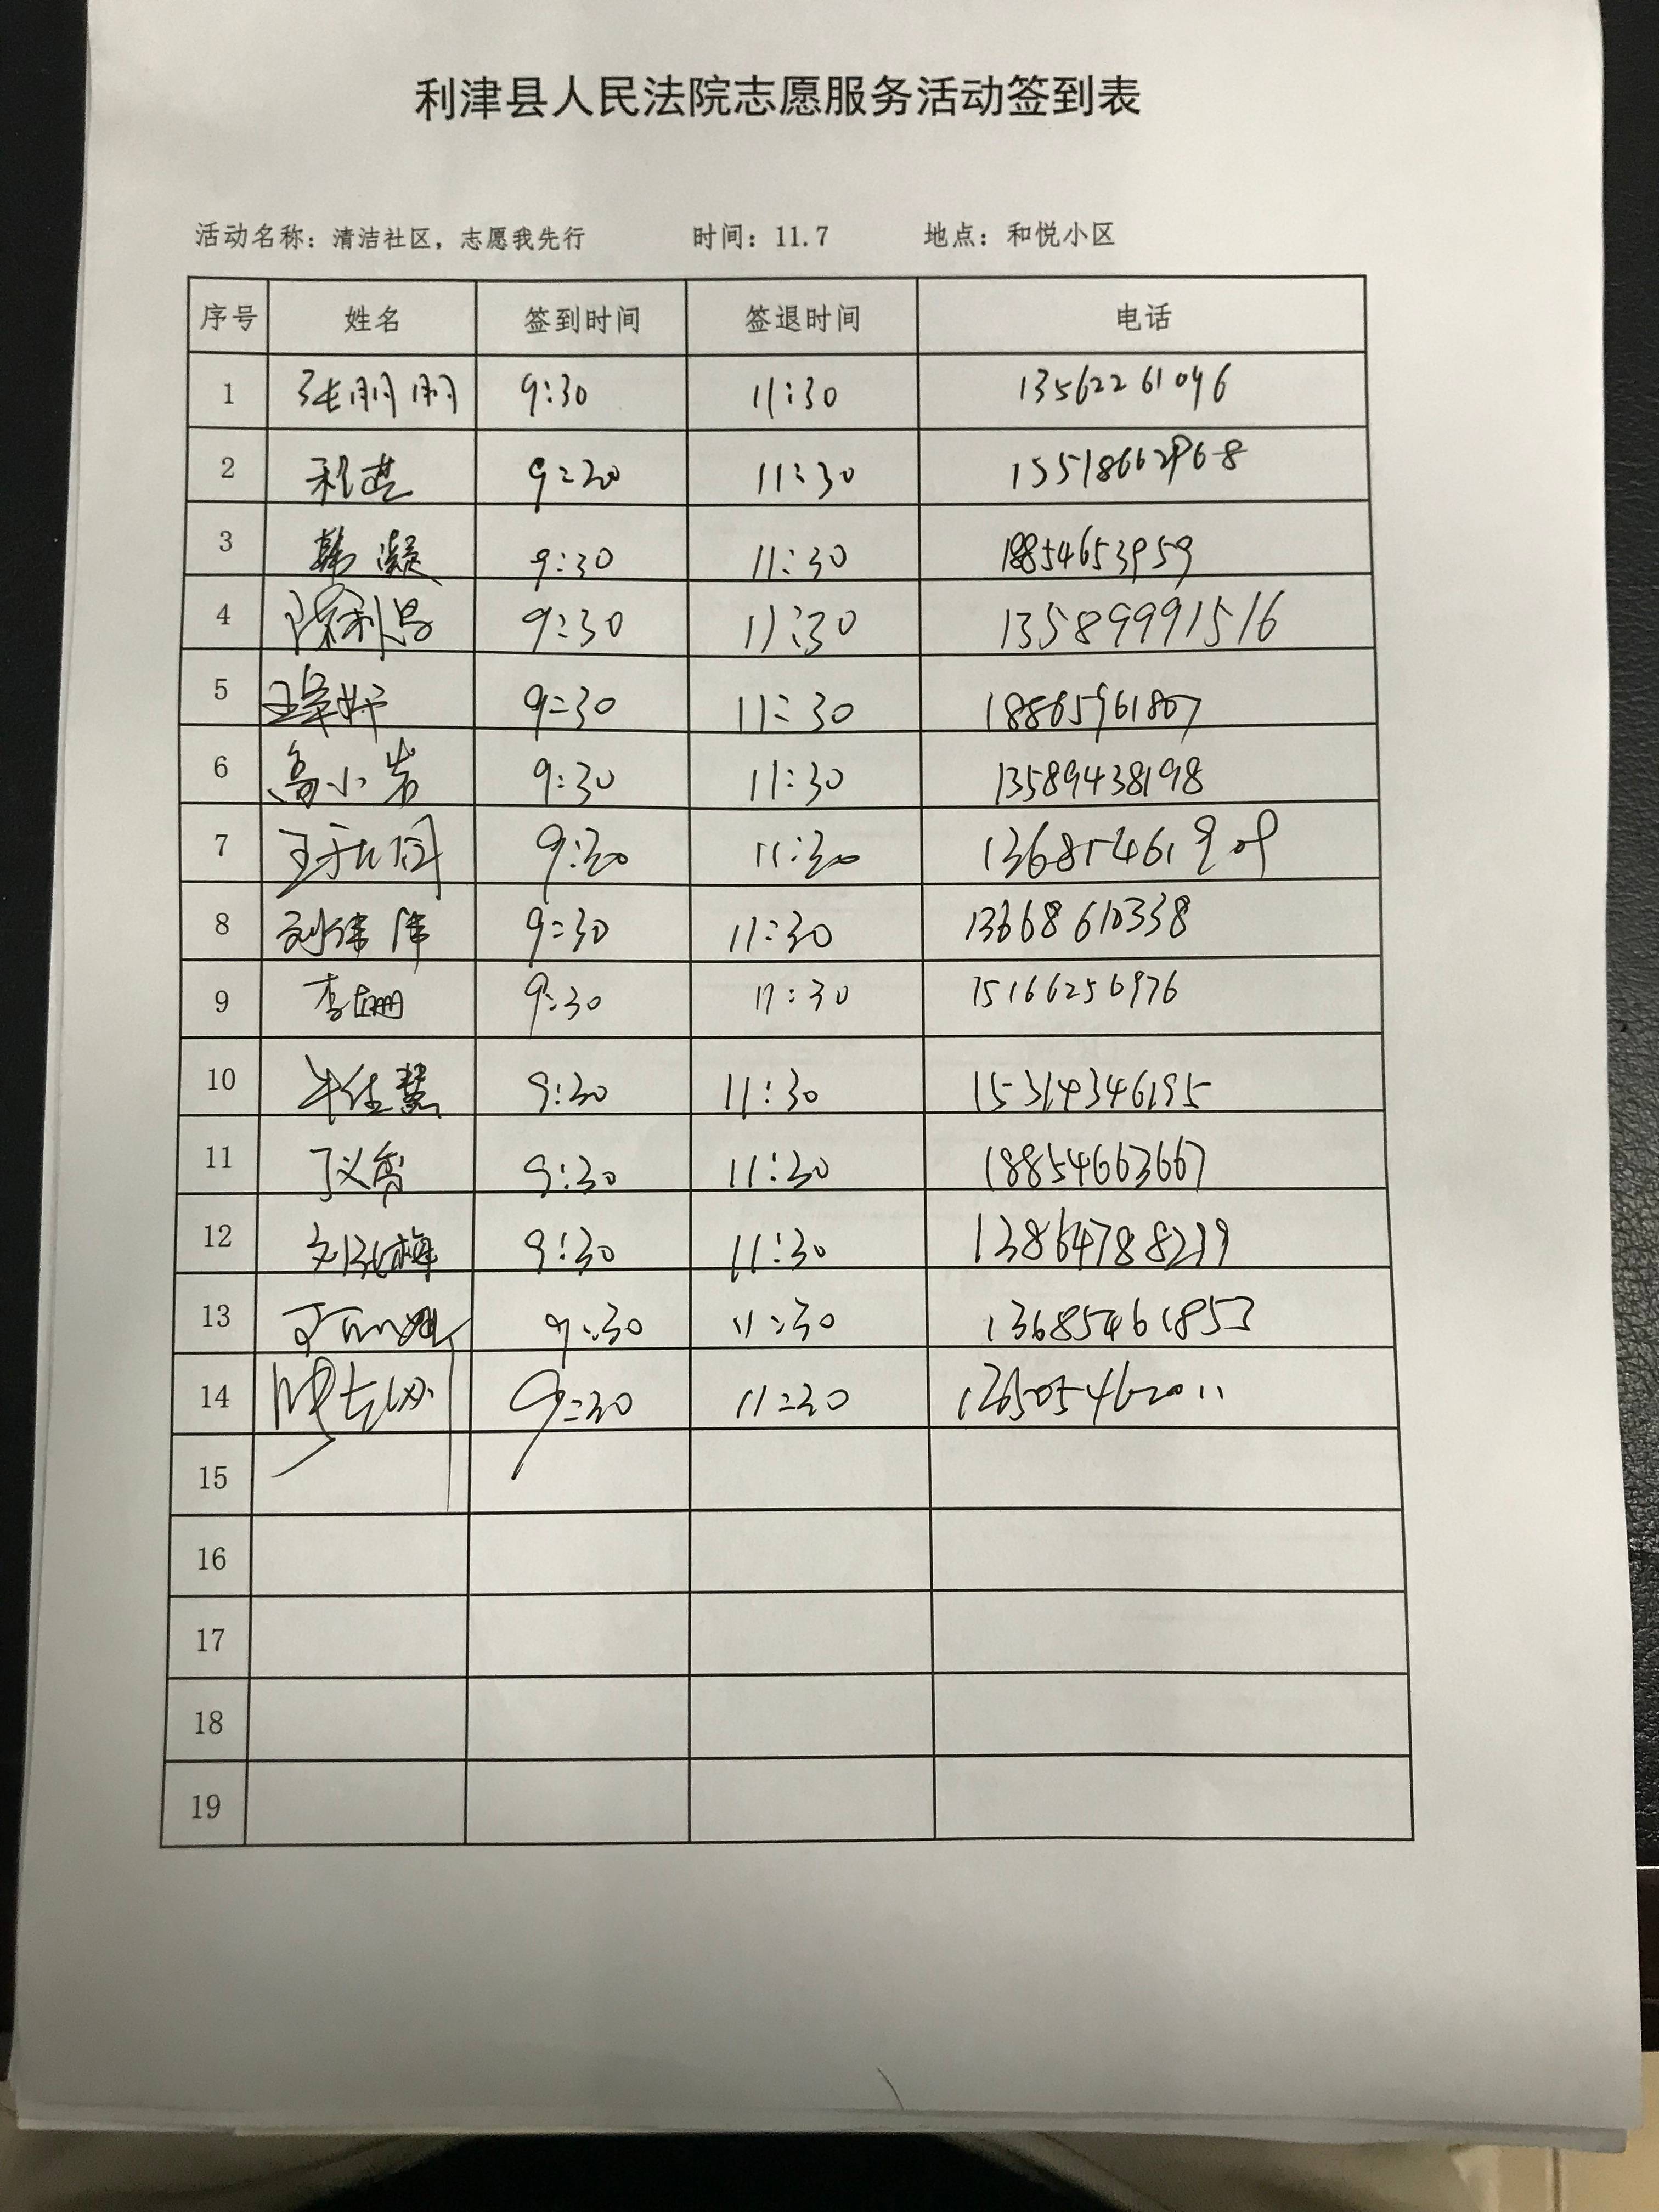 利津县人民法院志愿服务活动签到表
活动名称：清洁社区，志愿我先行 时间：11.7 地点：和悦小区
序号 姓名 签到时间 签退时间 电话
1 张丽丽 9:30 11:30 13562261096
2 程琪 9:30 11:30
3 韩凝 9:30 11:30 18854653959
4 陈利昌 9:30 11:30 13589991516
5 9:30 11:30 18865961807
6 高小岩 9:30 11:30 13589438198
7 9:30 11:30
8 刘伟伟 9:30 11:30 13668610338
9 李珊 9:30 11:30 15166256976
10 牛佳慧 9:30 11:30 15314346195
11 9:30 11:30 18854663667
12 9:30 11:30 13864788219
13 9:30 11:30 13685461853
14 9:30 11:30
15
16
17
18
19